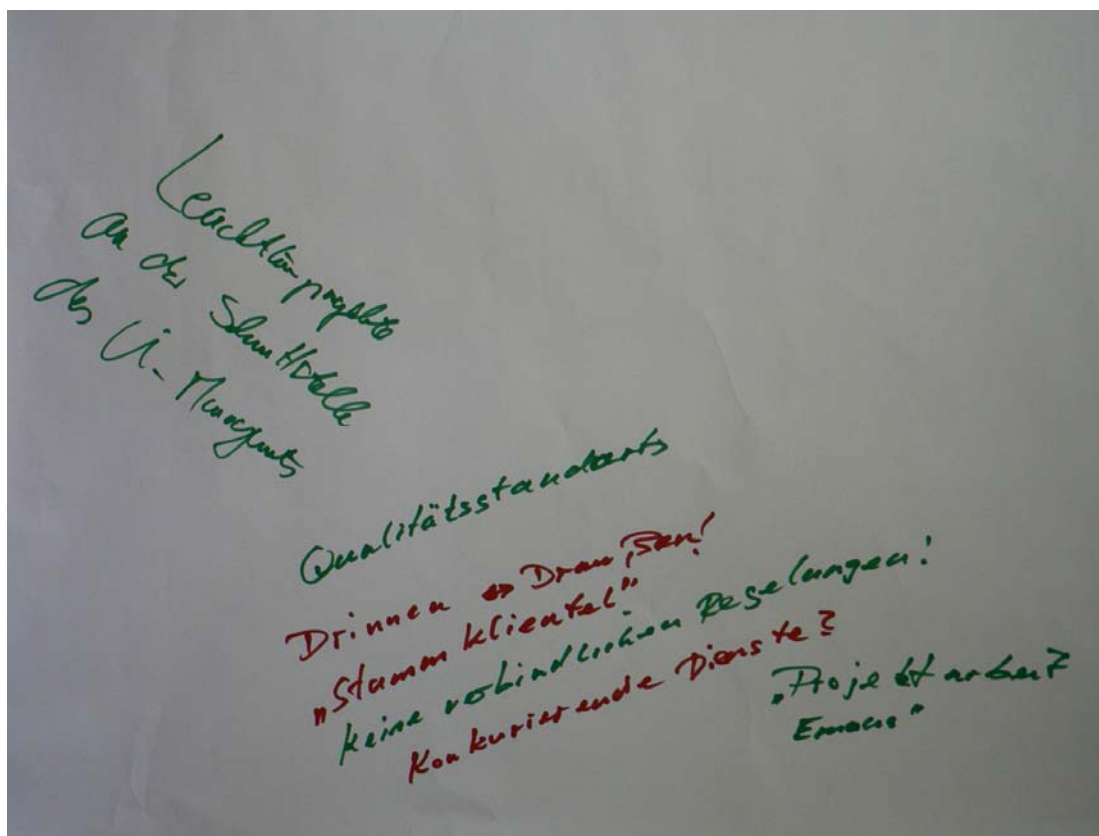 Leuchtturmprojekte
an der Schnittstelle
des Ü-Managements
Qualitätsstandarts
Drinnen ↔ Draußen!
„Stammklientel"
keine verbindlichen Regelungen!
Konkurierende Dienste?
„Projektarbeit